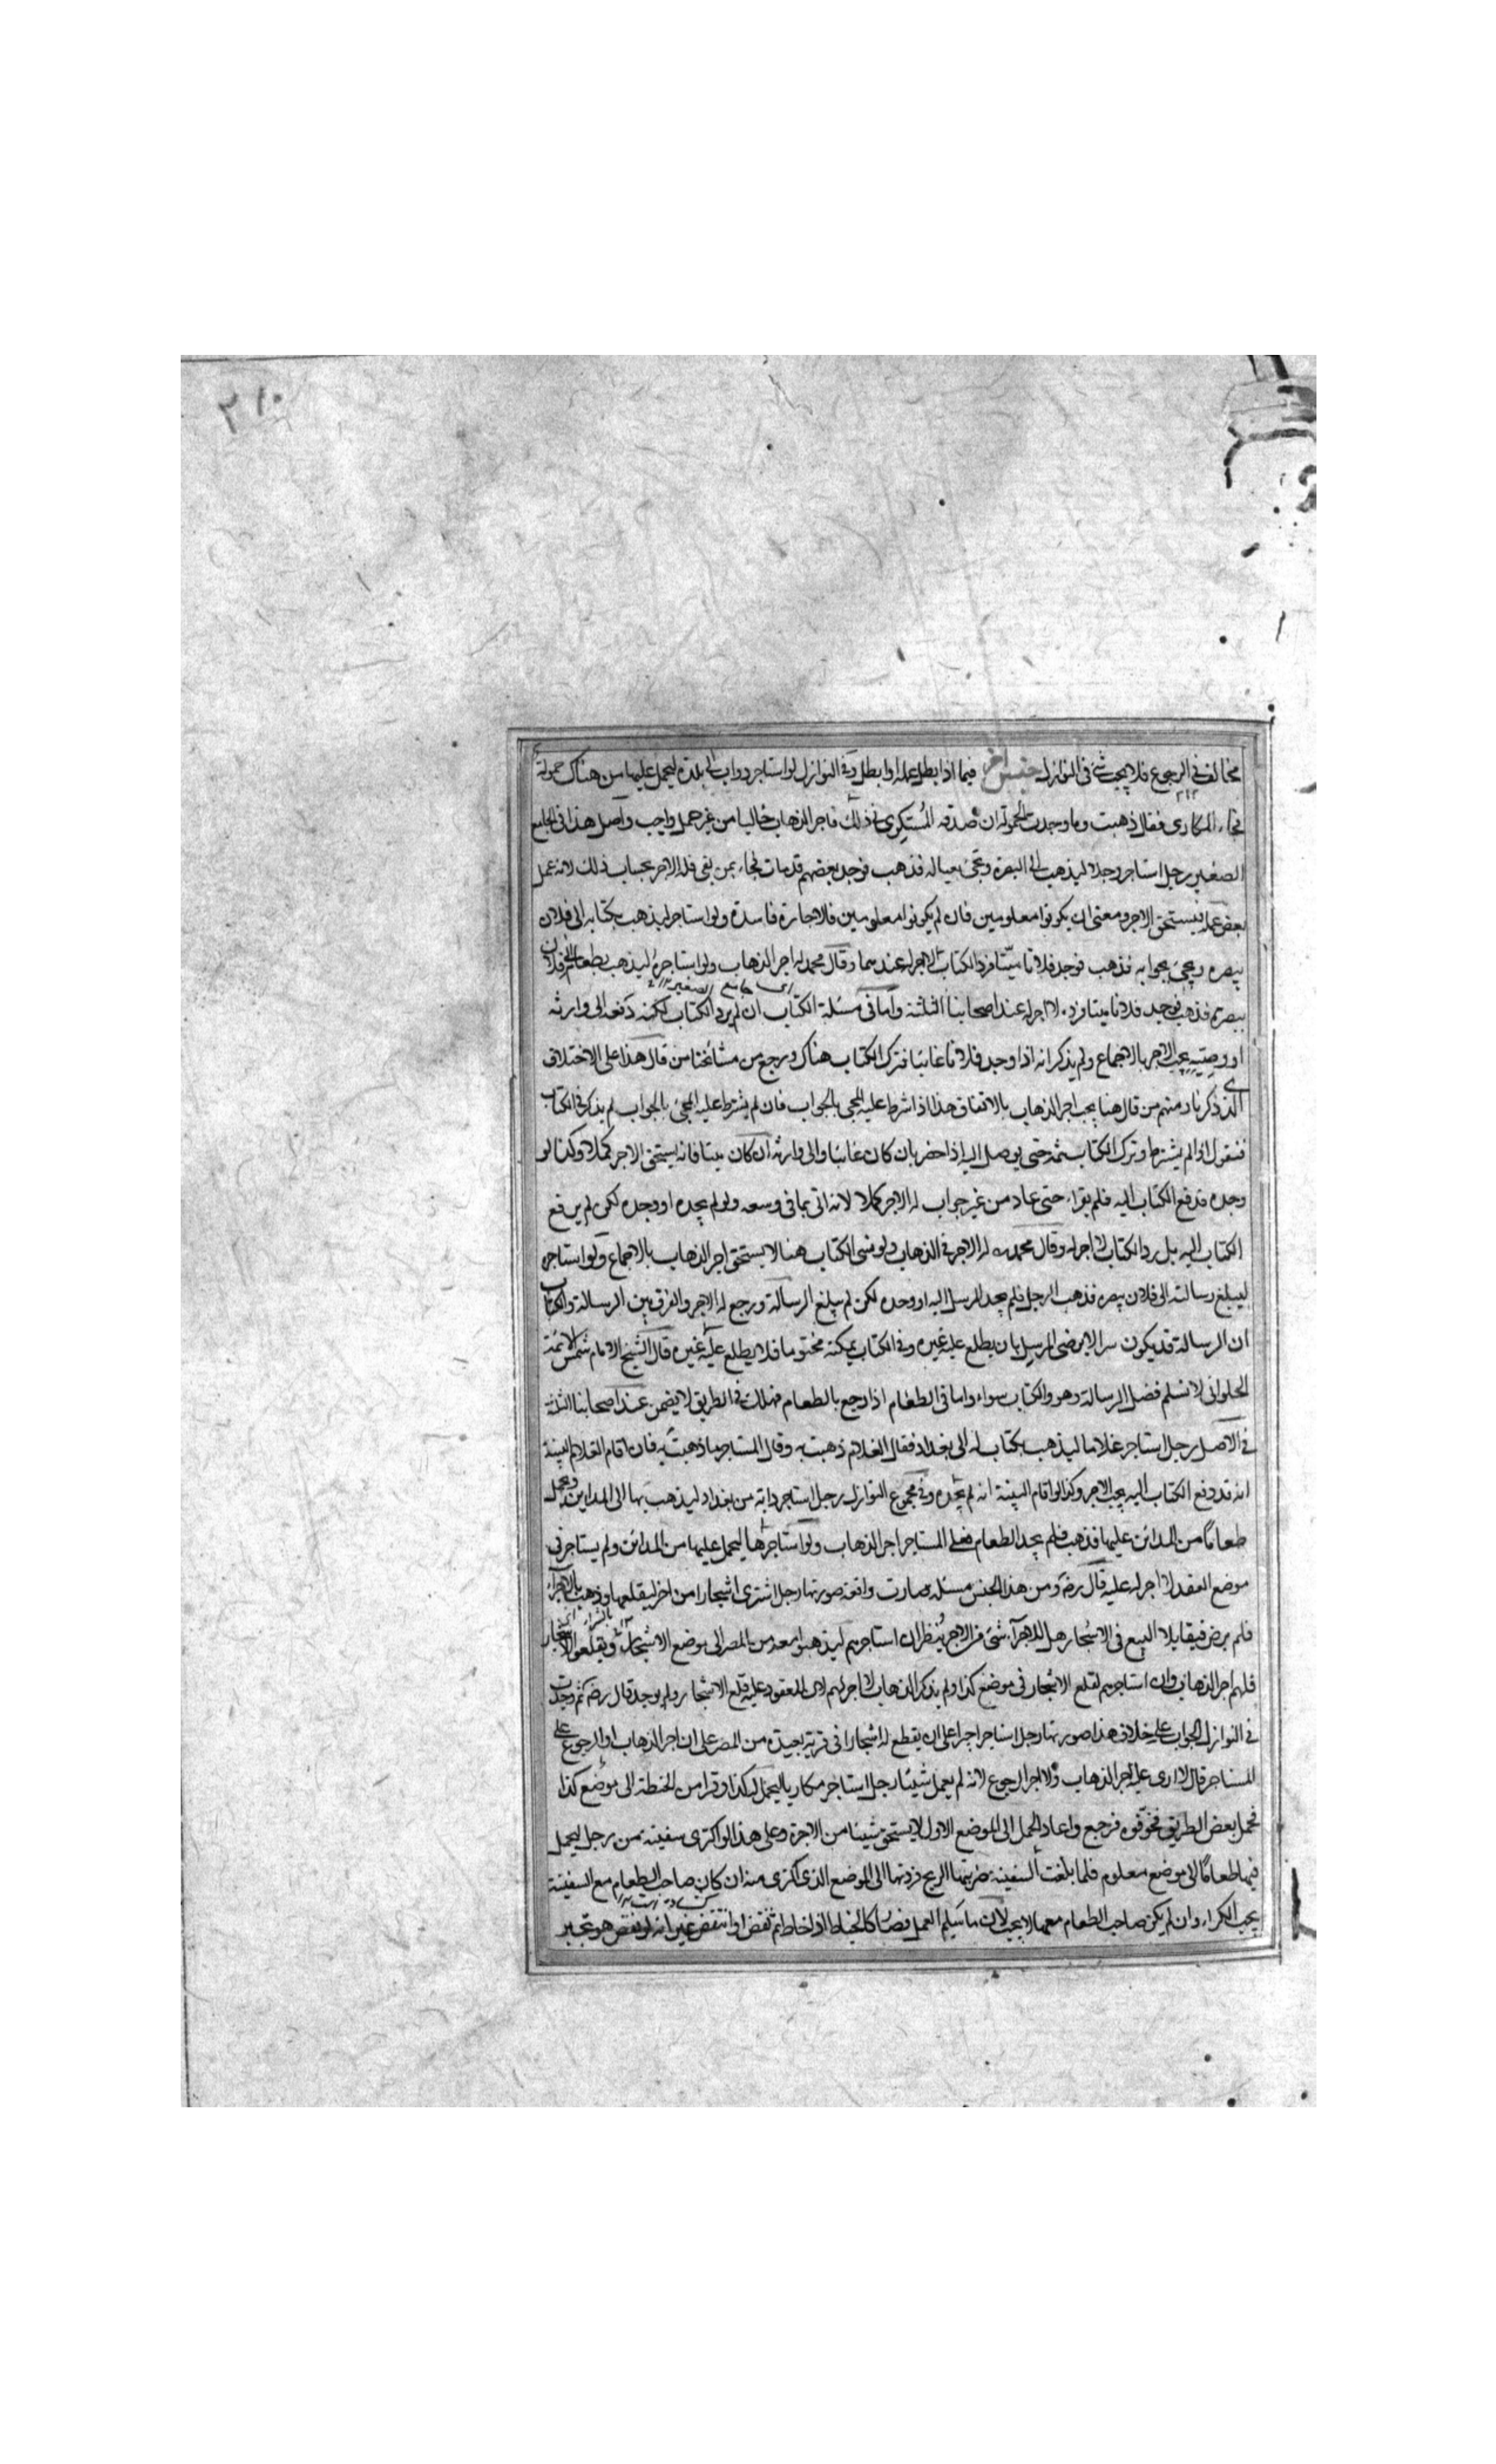 ٣١٠
مخالف فى الرجوع فلا يجب شئ فى النوازل جنس اخر فيما اذا بطل عمله او ابطل وفى النوازل لو استاجر دواب الى بلدة ليحمل عليها من هناك حمولة
فجاء المكارى فقال ذهبت وما وجدت الحمولة ان صدقه المستكرى فى ذلك فاجر الذهاب خاليا من غير حمل واجب واصل هذا فى الجامع
الصغير رجل استاجر رجلا ليذهب الى البصرة ويجئ بعياله فذهب فوجد بعضهم قد مات فجاء بمن بقى فله الاجر بحساب ذلك لانه عمل
بعض عمله فيستحق الاجر ومعنى ان يكونوا معلومين فان لم يكونوا معلومين فالاجارة فاسدة ولو استاجر ليذهب بكتابه الى فلان
ببصرة ويجئ بجوابه فذهب فوجد فلانا ميتا فرد الكتاب لا اجر له عندهما وقال محمد له اجر الذهاب ولو استاجره ليذهب بطعام الى فلان
اى جامع الصغير ١٢
ببصرة فذهب فوجد فلانا ميتا فرده لا اجر له عند اصحابنا الثلثة واما فى مسئلة الكتاب ان لم يرد الكتاب لكنه دفعه الى وارثه
او وصيه يجب الاجر بالاجماع ولم يذكر انه اذا وجد فلانا غائبا فترك الكتاب هناك ورجع من مشائخنا من قال هذا على الاختلاف
الذى ذكرنا ومنهم من قال هنا يجب اجر الذهاب بالاتفاق هذا اذا شرط عليه المجئ بالجواب فان لم يشترط عليه المجئ بالجواب لم يذكر فى الكتاب
فنقول اذا لم يشترط وترك الكتاب ثمة حتى يوصل اليه اذا حضر بان كان غائبا والى وارثه ان كان ميتا فانه يستحق الاجر كملا وكذا لو
وجده فدفع الكتاب اليه فلم يقراء حتى عاد من غير جواب له الاجر كملا لانه اتى بما فى وسعه ولو لم يجده او وجده لكن لم يدفع
الكتاب اليه بل رد الكتاب لا اجر له وقال محمد له الاجر فى الذهاب ولو نسى الكتاب هنا لا يستحق اجر الذهاب بالاجماع ولو استاجره
ليبلغ رسالته الى فلان ببصرة فذهب الرجل فلم يجد المرسل اليه او وجده لكن لم يبلغ الرسالة ورجع له الاجر والفرق بين الرسالة والكتاب
ان الرسالة قد يكون سرا لا يرضى المرسل بان يطلع عليه غيره وفى الكتاب يمكنه مختوما فلا يطلع عليه غيره قال الشيخ الامام شمس الائمة
الحلوانى لا نسلم فضل الرسالة وهو والكتاب سواء واما فى الطعام اذا رجع بالطعام فهلك فى الطريق لا يضمن عند اصحابنا الثلثة
فى الاصل رجل استاجر غلاما ليذهب بكتاب له الى بغداد فقال الغلام ذهبت به وقال المستاجر ما ذهبت به فان اقام الغلام البينة
انه قد دفع الكتاب اليه يجب الاجر وكذا لو اقام البينة انه لم يجده وفى مجموع النوازل رجل استاجر دابة من بغداد ليذهب بها الى المداين ويحمل
طعاما من المدائن عليها فذهب فلم يجد الطعام فعلى المستاجر اجر الذهاب ولو استاجرها ليحمل عليها من المدائن ولم يستاجر فى
موضع العقد لا اجر له عليه قال رضه ومن هذا الجنس مسئلة صارت واقعة صورتها رجل اشترى اشجارا من اخر ليقلعها وذهب بالاجراء
فلم يرض فتقايلا البيع فى الاشجار هل للاجراء شئ من الاجر ينظر ان استاجرهم ليذهبوا معه من المصر الى موضع الاشجار ويقلعوا الاشجار
فلهم اجر الذهاب وان استاجرهم لقلع الاشجار فى موضع كذا ولم يذكر الذهاب لا اجر لهم لان المعقود عليه قلع الاشجار ولم يوجد قال رضه ثم وجدت
فى النوازل الجواب على خلاف هذا صورتها رجل استاجر اجراء على ان يقطع له اشجارا فى قرية بعيدة من المصر على ان اجر الذهاب او الرجوع على
المستاجر قال لا ارى عليه اجر الذهاب ولا اجر الرجوع لانه لم يعمل شيئا رجل استاجر مكاريا ليحمل له كذا وقرا من الحنطة الى موضع كذا
فحمل بعض الطريق فخوفوه فرجع واعاد الحمل الى الموضع الاول لا يستحق شيئا من الاجرة وعلى هذا لو اكترى سفينة من رجل ليحمل
فيها طعاما الى موضع معلوم فلما بلغت السفينة ضربتها الريح فردتها الى الموضع الذى اكترى منه ان كان صاحب الطعام مع السفينة
يجب الكراء وان لم يكن صاحب الطعام معها لا يجب لان ما سلم العمل فصار كالخياط اذا خاط ثم نقض او انتقض غير انه لو نقض هو يجبر